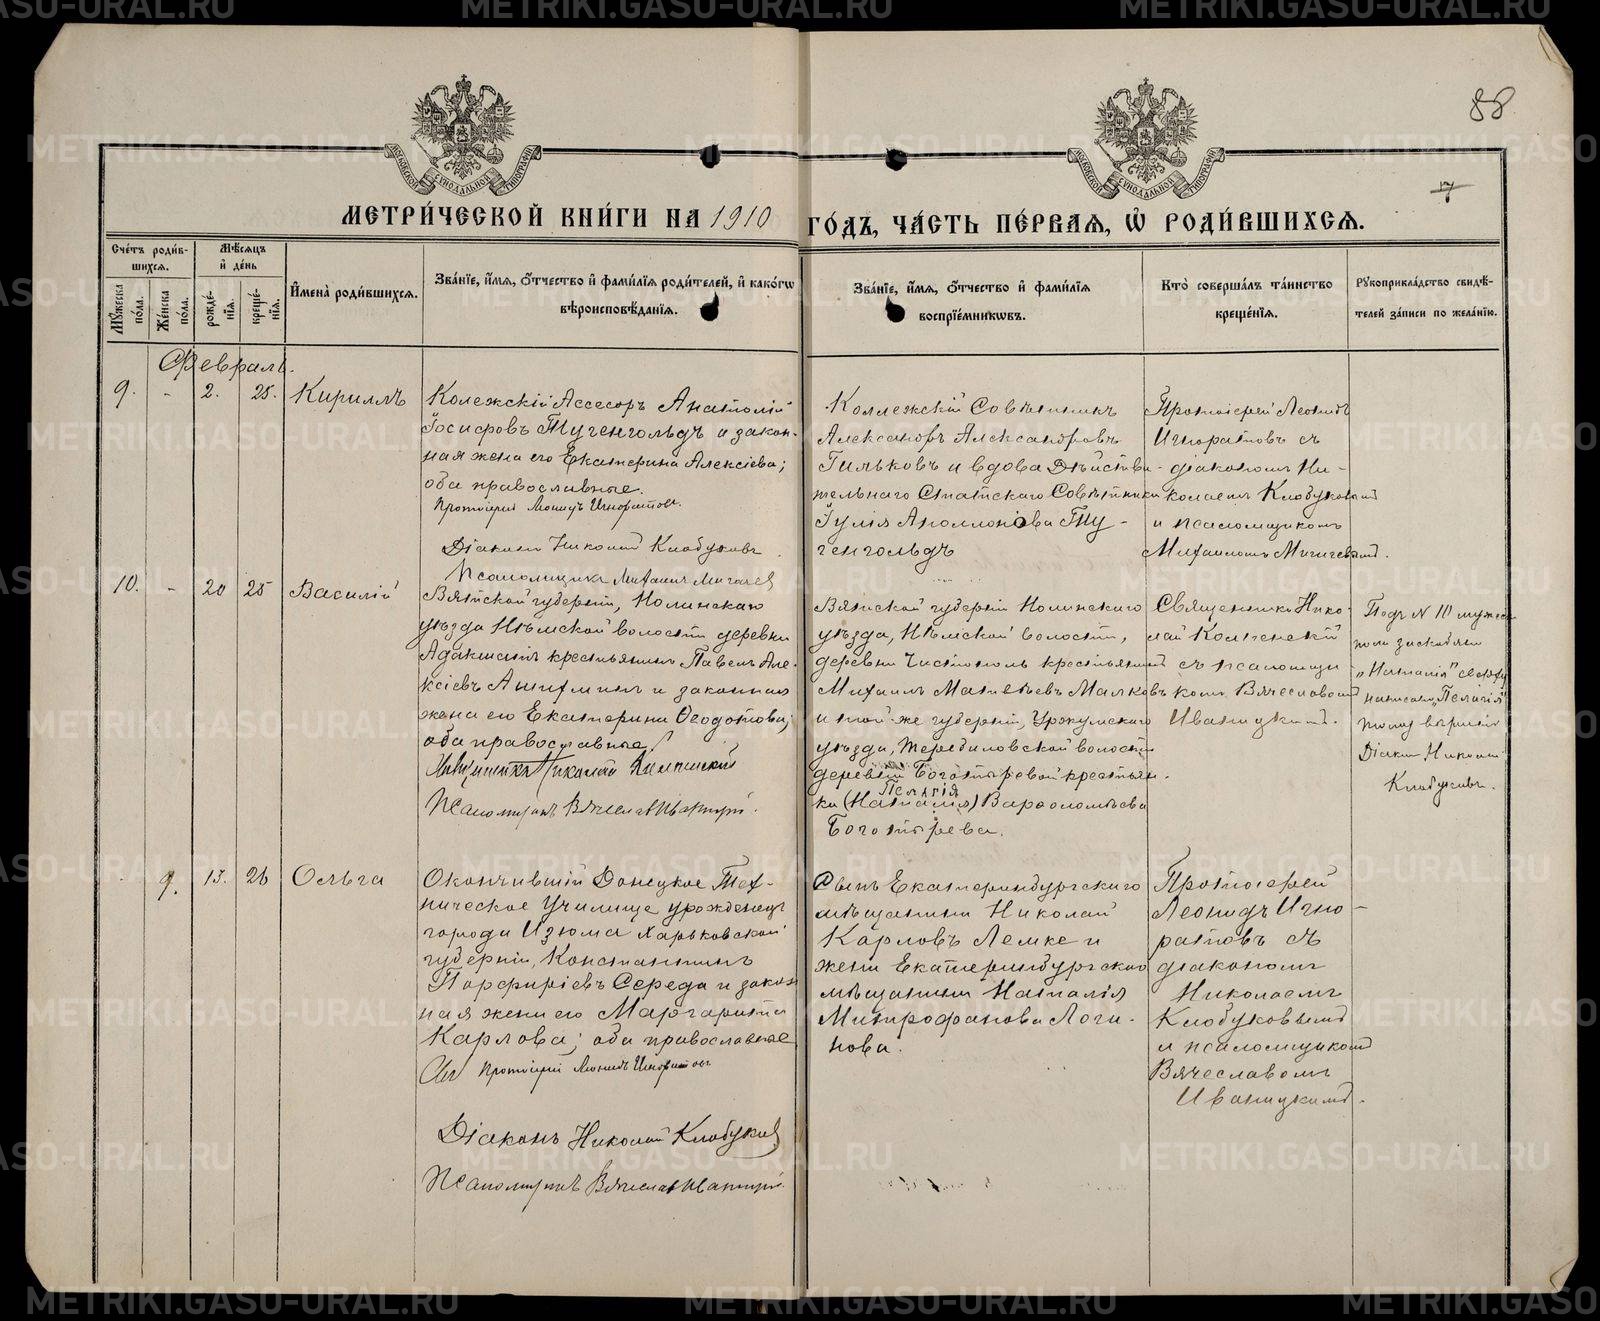 88
7
МОСКОВСКОЙ СѴНОДАЛЬНОЙ ТИПОГРАФІИ
МОСКОВСКОЙ СѴНОДАЛЬНОЙ ТИПОГРАФІИ
МЕТРИ́ЧЕСКОЙ КНИ́ГИ НА 1910 ГО́ДЪ, ЧА́СТЬ ПЕ́РВАЯ, Ѡ РОДИ́ВШИХСЯ.
Сче́тъ роди́в-
шихся.
Мꙋ́жеска по́ла.
Же́нска по́ла.
Мѣ́сяцъ
и҆ де́нь
рожде́-
нїя.
креще́-
нїя.
И҆мена̀ роди́вшихся.
Зва́нїе, и҆́мя, ѻ҆́тчество и҆ фами́лїя роди́телей, и҆ како́гѡ
вѣроисповѣ́данїя.
Зва́нїе, и҆́мя, ѻ҆́тчество и҆ фами́лїя
воспрїе́мникѡвъ.
Кто̀ соверша́лъ та́инство
креще́нїя.
Рꙋкоприкла́дство свидѣ́-
телей за́писи по жела́нїю.
Февраль.
9. - 2. 25. Кириллъ
Колежскій Ассесоръ Анатолій
Іосифовъ Тугенгольдъ и закон-
ная жена его Екатерина Алексіева;
оба православные.
Протоіерей Леонидъ Игноратовъ.
Діаконъ Николай Клобуковъ.
Псаломщикъ Михаилъ Мигачев
Коллежскій Совѣтникъ
Александръ Александровъ
Гильковъ и вдова Дѣйстви-
тельнаго Статскаго Совѣтника
Іулія Аполлонова Ту-
генгольдъ
Протоіерей Леонидъ
Игноратовъ съ
діакономъ Ни-
колаемъ Клобуковымъ
и псаломщикомъ
Михаиломъ Мигачевымъ.
10. - 20 25 Василій
Вятской губерніи, Нолинскаго
уѣзда Нѣмской волости деревни
крестьянинъ Павелъ Але-
ксіевъ и законная
жена его Екатерина Ѳеодотова;
оба православные.
Священникъ Николай
Псаломщикъ Вячеславъ Иваницкій.
Вятской губерніи Нолинскаго
уѣзда, Нѣмской волости,
деревни Чистополь крестьянинъ
Михаилъ Матвѣевъ Малковъ
и той же губерніи, Уржумскаго
уѣзда, Теребиловской волости
деревни Богатыревой крестьян-
Пелагія
ка (Наталія) Варѳоломѣева
Богатырева.
Священникъ Нико-
лай
съ псаломщи
комъ Вячеславомъ
Иваницкимъ.
Подъ N 10 мужес
пола
"Наталія" сверху
написано "Пелагія"
Діаконъ Николай
Клобуковъ.
9. 13. 26 Ольга
Окончившій Донецкое Тех-
ническое Училище урожденец
города Изюма Харьковской
губерніи, Константинъ
Порфиріевъ Середа и закон
ная жена его Маргарита
Карлова; оба православные
Протоіерей Леонидъ Игноратовъ
Діаконъ Николай Клобуков
Псаломщикъ Вячеславъ Иваницкій.
Сынъ Екатеринбургскаго
мѣщанина Николай
Карловъ Лемке и
жена Екатеринбургскаго
мѣщанина Наталія
Митрофанова Логи-
нова.
Протоіерей
Леонидъ Игно-
ратовъ съ
діакономъ
Николаемъ
Клобуковымъ
и псаломщикомъ
Вячеславомъ
Иваницкимъ.
METRIKI.GASO-URAL.RU